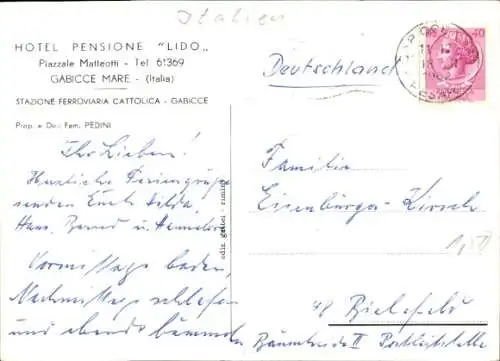 Italien
HOTEL PENSIONE "LIDO„
Piazzale Matteotti - Tel 61369
GABICCE MARE - (Italia)
STAZIONE FERROVIARIA CATTOLICA - GABICCE
Prop. e Dir.: Fam. PEDINI
Ihr Lieben!
Herzliche Feriengrüße
senden Euch Hilda,
Hans, Bernd u. Hannelore
Vormittags baden,
Nachmittags schlafen
und abends bummeln
ediz. gentosi - rimini
40
Deutschland
Familie
Eisenbürger-Kirsch
48 Bielefeld
II Postleitstelle